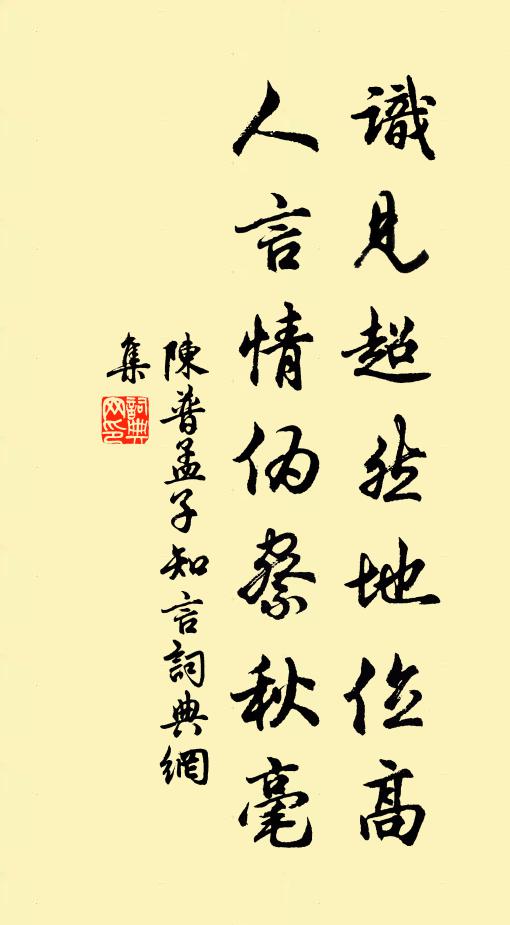 識見超然地位高
人言情偽察秋毫
陳普孟子知言詞典網
集
詞典
网印